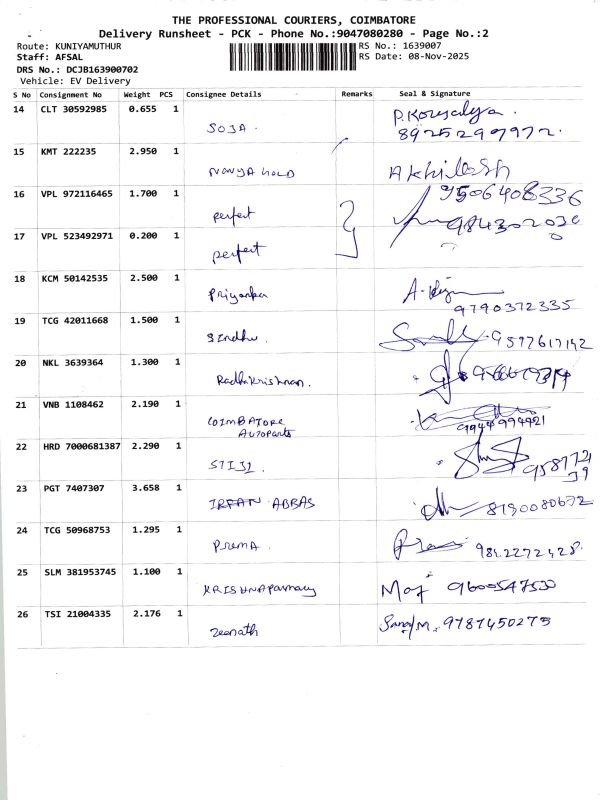 THE PROFESSIONAL COURIERS, COIMBATORE
Delivery Runsheet - PCK - Phone No.:9047080280 - Page No.:2
Route: KUNIYAMUTHUR RS No.: 1639007
Staff: AFSAL RS Date: 08-Nov-2025
DRS No.: DCJB163900702
Vehicle: EV Delivery
S No Consignment No Weight PCS Consignee Details Remarks Seal & Signature
14 CLT 30592985 0.655 1
SOJA. 8925299972.
15 KMT 222235 2.950 1
NAVYA GOLD Akhilesh
9506408336
16 VPL 972116465 1.700 1
perfect
17 VPL 523492971 0.200 1
perfect
18 KCM 50142535 2.500 1
Priyanka 9790372335
19 TCG 42011668 1.500 1
Sindhu 9597617142
20 NKL 3639364 1.300 1
Radhakrishnan.
21 VNB 1108462 2.190 1
COIMBATORE
Autoparts 9944994421
22 HRD 7000681387 2.290 1
23 PGT 7407307 3.658 1
IRFAN ABBAS 8190080672
24 TCG 50968753 1.295 1
Prema. 9842272428.
25 SLM 381953745 1.100 1
9600547530
26 TSI 21004335 2.176 1
zeenath 9787450275